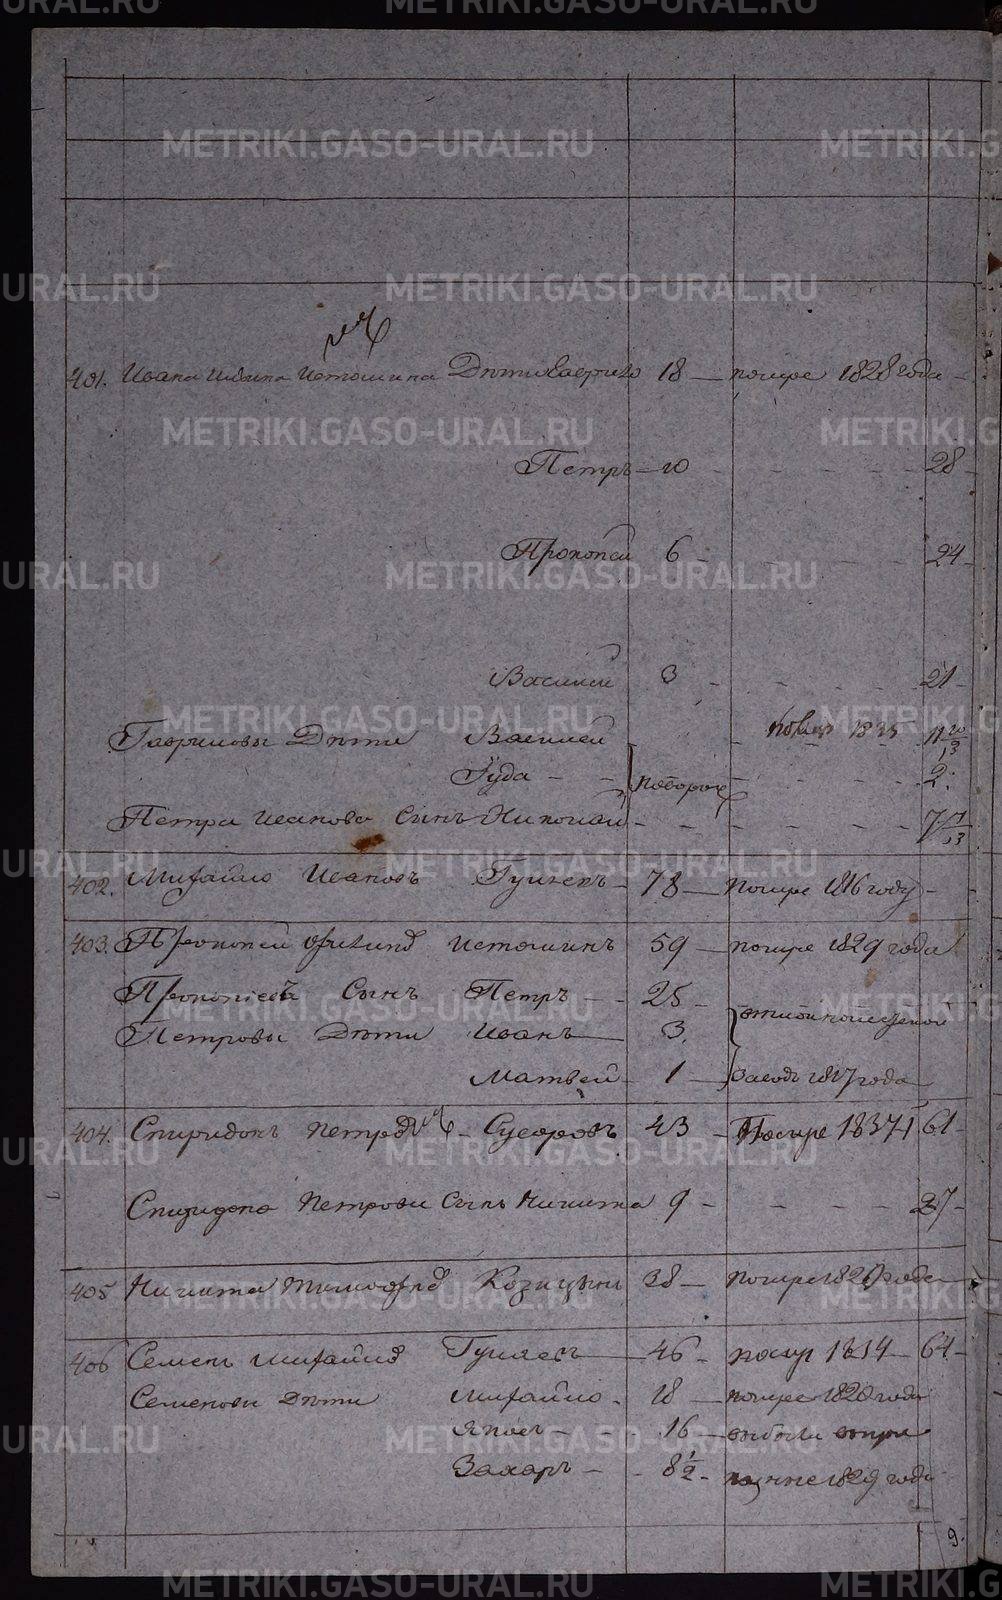 METRIKI.GASO-URAL.RU
401. Ивана Ильина Истомина Дѣти Гаврило 18 — помре 1828 года —
Петръ — 10 - - - - 28 -
Прокопей 6 - - - - 24 -
Василей 3 - - - - 21 -
Гавриловы Дѣти Василей 1835 11
Iуда - - 2.
Петра Иванова Сынъ Николай - - - - 7
402. Михайло Ивановъ Гуляевъ - 78 — помре 1816 году -
403. Прокопей Истоминъ 59 — помре 1829 года
Прокопьевъ Сынъ Петръ - - 25 -
Петровы Дѣти Иванъ — 3.
Матвей - 1 — заводъ 1817 года
404. Спиридонъ Петровъ - Сусоровъ 43 - Помре 1837 61 -
Спиридона Петрова Сынъ Никита 9 - - - - 27 -
405 Никита Тимофѣевъ Козицынъ 38 — помре 1829 года
406 Семенъ Михайловъ Гуляевъ — 46 - помре 1834 — 64 -
Семеновы Дѣти Михайло - 18 — помре 1828 года
Яковъ - - 16 -
Захаръ - - 8½ - 1829 года
9.